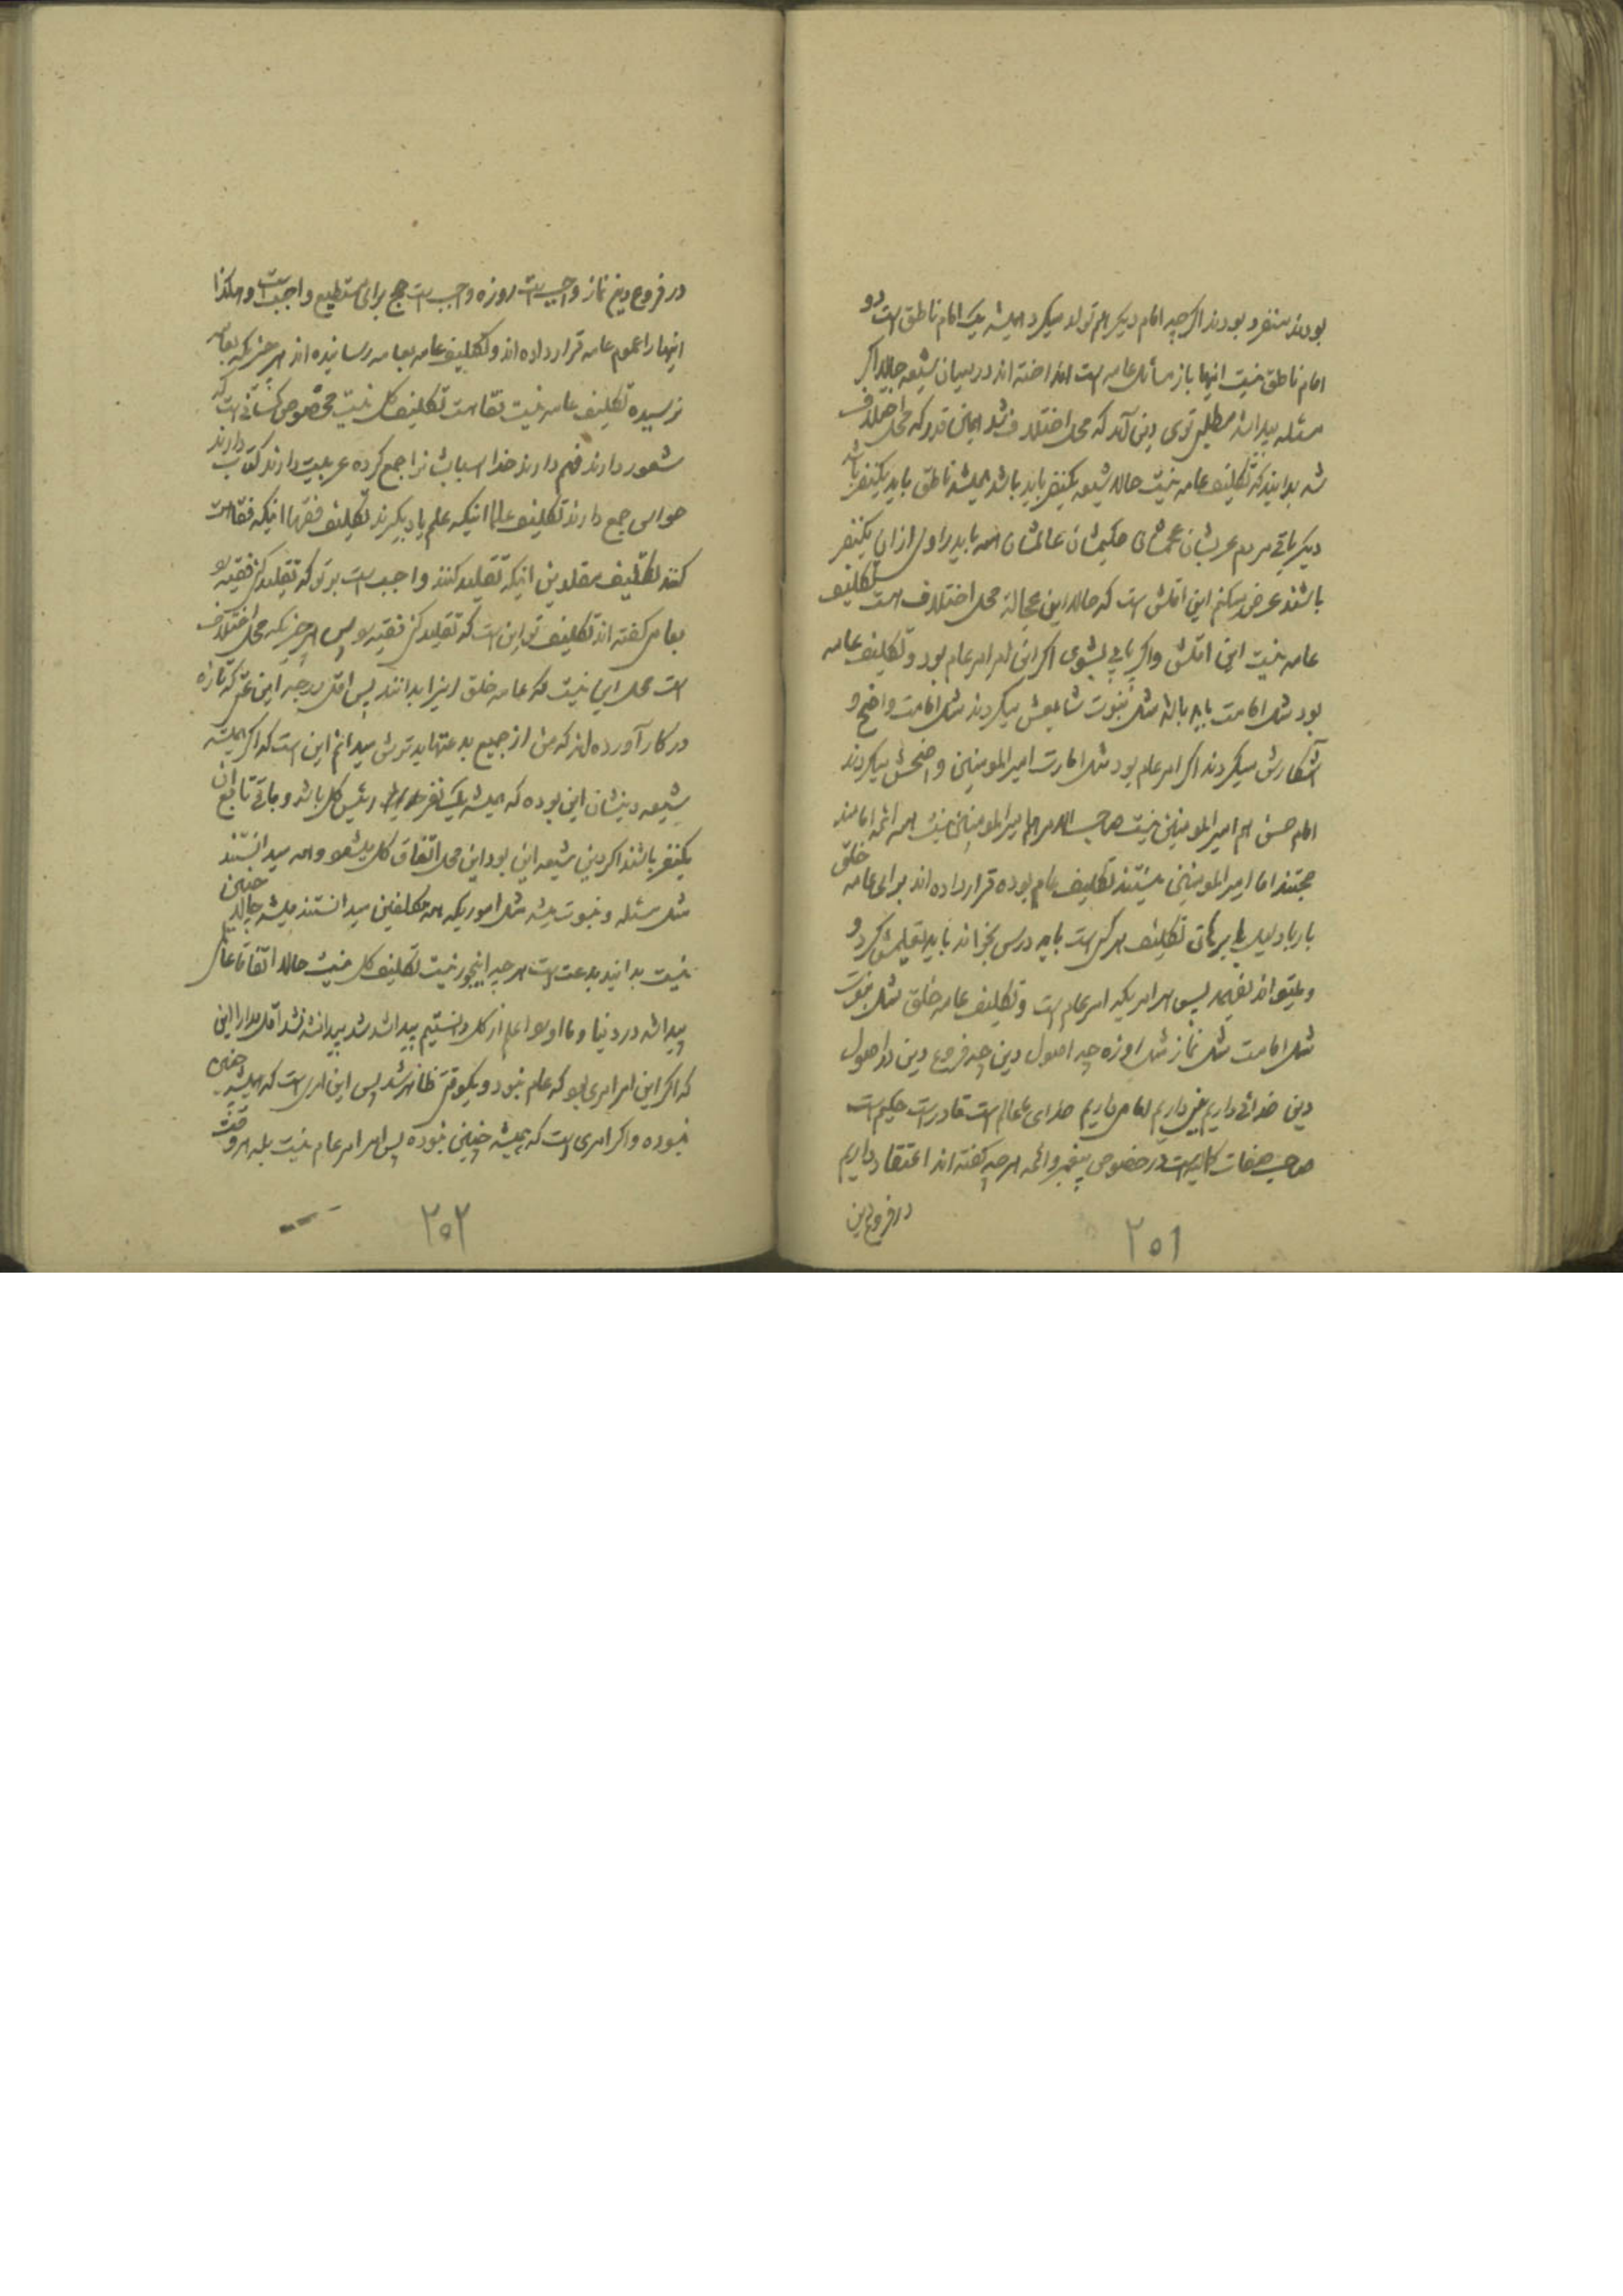 بودند منفرد بودند اگرچه امام دیگر هم تولد میکرد همیشه یک امام ناطق است دو
امام ناطق نیست اینها باز مسائل عامه است انداخته اند درمیان شیعه حالا اگر
مسئله پیدا شد مطلبی توی دین آمد که محل اختلاف شد همین قدر که محل اختلاف
شد بدانید که تکلیف عامه نیست حالا شیعه یکنفر باید باشد همیشه ناطق باید یکنفر باشد
دیگر باقی مردم عربشان عجمشان حکیمشان عالمشان همه باید براول از آن یکنفر
باشند عرض میکنم این اقلش است که حالا این عجالة محل اختلاف است تکلیف
عامه نیست این اقلش و اگر پاپی بشوی اگر این امر امر عام بود و تکلیف عامه
بود مثل امامت باید بالا مثل نبوت شایعش میکردند مثل امامت واضح و
آشکارش میکردند اگر امر عام بود مثل امارت امیرالمومنین واضحش میکردند
امام حسن هم امیرالمومنین نیست صاحب الامر هم امیرالمومنین نیست همه ائمه امامند
حجتند اما امیرالمومنین نیستند تکلیف عام بوده قرار داده اند برای عامه خلق
بار با دلیل با برهان تکلیف هر کس است باید درس بخواند باید تعلیمش کرد و
و میتواند بفهمد پس هر امریکه امر عام است و تکلیف عامه خلق مثل نبوت
مثل امامت مثل نماز مثل روزه چه اصول دین چه فروع دین در اصول
دین خدائی داریم پیغمبر داریم امامی داریم خدای عالم است قادر است حکیم است
صاحب صفات کمالیه است در خصوص پیغمبر و ائمه هر چه گفته اند اعتقاد داریم
در فروع دین
۲۵۱
در فروع دین نماز واجب است روزه واجب است حج برای مستطیع واجب است و هکذا
اینها را عموم عامه قرار داده اند و تکلیف عامه بعامه رسانیده اند هر چیزیکه بعامه
نرسیده تکلیف عامه نیست فقاهت تکلیف کل نیست مخصوص کسانی است که
شعور دارند فهم دارند خدا اسباب شان را جمع کرده عربیت دارند کتاب دارند
حواس جمع دارند تکلیف علما اینکه علم یاد بگیرند تکلیف فقها اینکه فقاهت
کنند تکلیف مقلدین اینکه تقلید کنند واجب است بر تو که تقلید کنی فقیه را
بعامی گفته اند تکلیف تو این است که تقلید کنی فقیه را پس هر چیزیکه محل اختلاف
است محل این نیست که عامه خلق اینرا بدانند پس اقل درجه این که تازه
در کار آورده اند که من از جمیع بدعتها بدترش میدانم این است که اگر همیشه
شیعه دینشان این بوده که همیشه یک نفر رئیس کل باشد و باقی تابع آن
یکنفر باشند اگر دین شیعه این بود این محل اتفاق کل میشد و همه میدانستند
مثل مسئله نبوت میشد مثل اموریکه همه مکلفین میدانستند میشد حالا چنین
نیست بدانید بدعت است هر چه اینجور نیست تکلیف کل نیست حالا اتفاقا عالمی
پیدا شد در دنیا و ما او را اعلم از کل دانستیم پیدا شد شد پیدا نشد نشد اقل مدارا این
که اگر این امر امری بود که عام نبود و یکوقتی ظاهر شد پس این امری است که همیشه چنین
نبوده و اگر امری است که همیشه چنین نبوده پس امر امر عام نیست بله هر وقت
۲۵۲